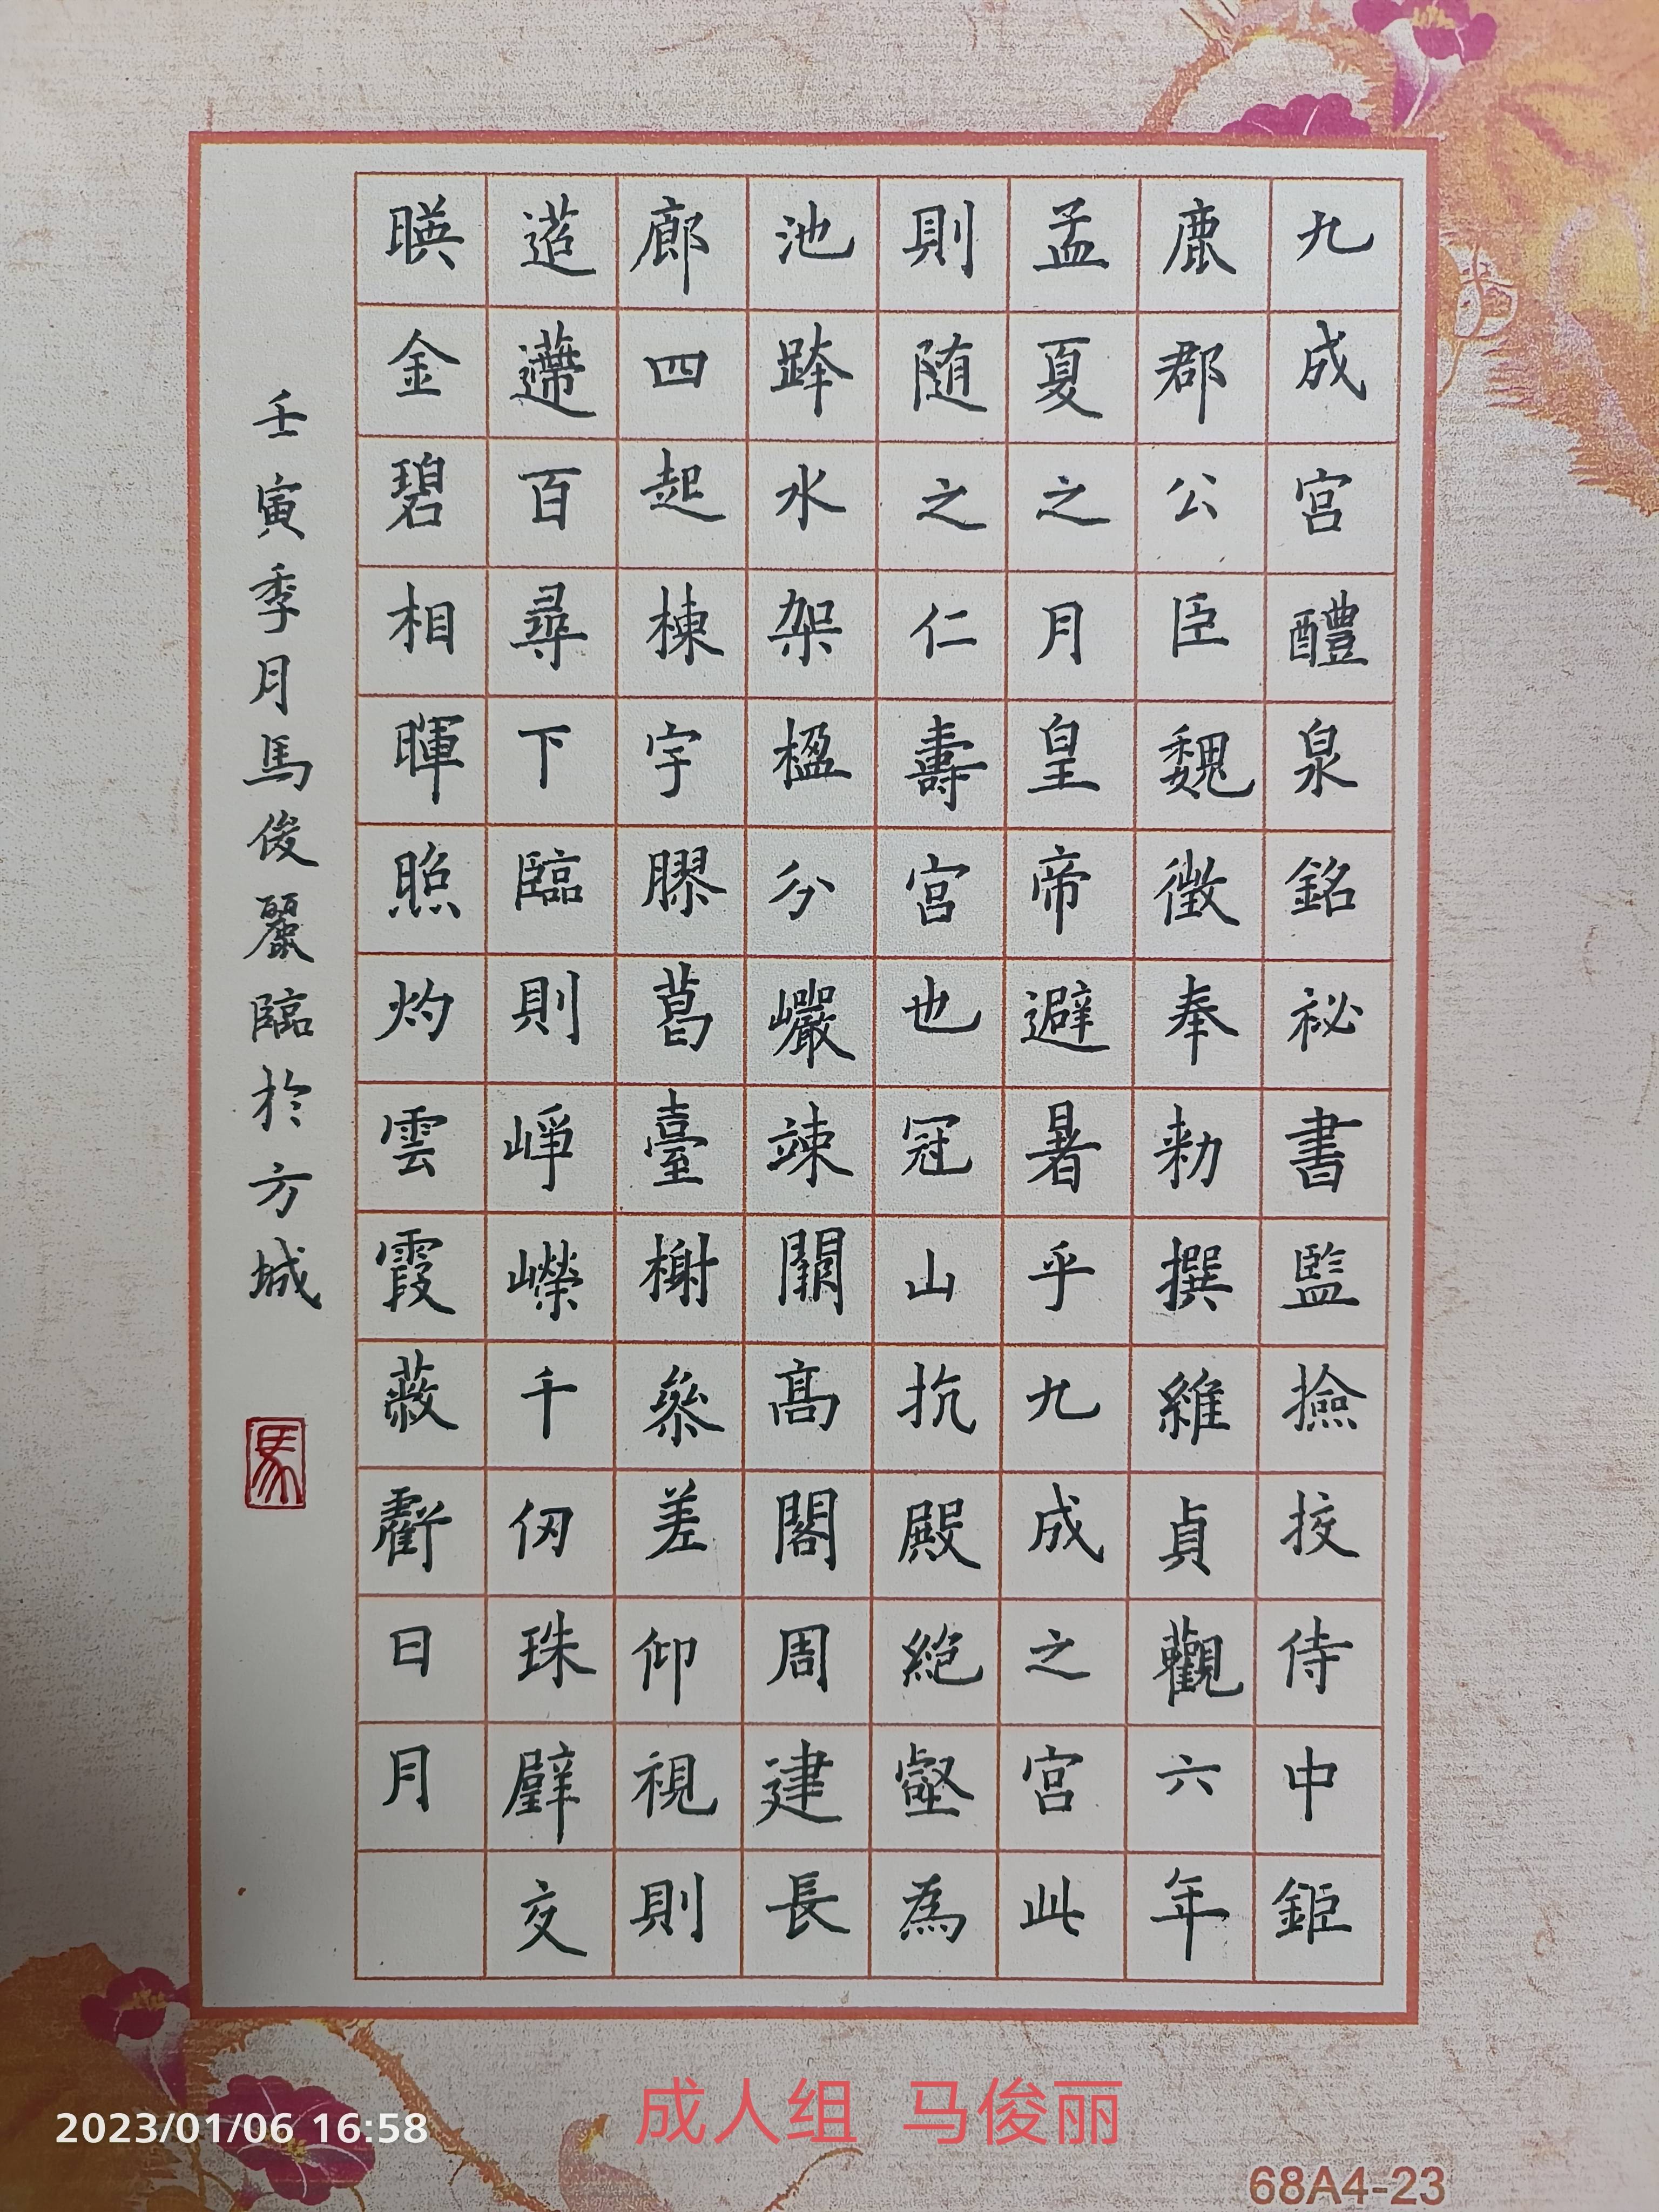 九成宫醴泉銘祕書監撿挍侍中鉅
鹿郡公臣魏徵奉勑撰維貞觀六年
孟夏之月皇帝避暑乎九成之宫此
則随之仁壽宫也冠山抗殿絶壑為
池跨水架楹分巖竦闕高閣周建長
廊四起棟宇膠葛臺榭叅差仰視則
迢遰百尋下臨則崢嶸千仞珠璧交
暎金碧相暉照灼雲霞蔽虧日月
壬寅季月馬俊麗臨於方城
馬
成人组 马俊丽
2023/01/06 16:58
68A4-23